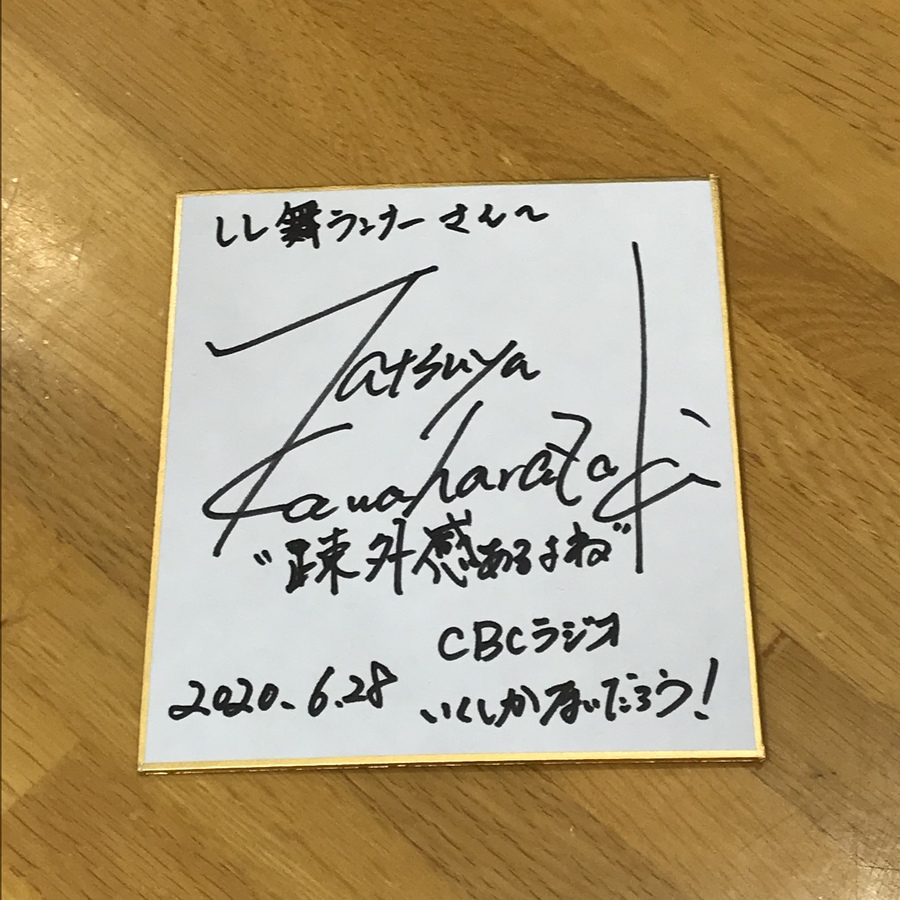 しし舞ランナーさんへ
Tatsuya
Kawaharazaki
"疎外感あるよね"
CBCラジオ
2020.6.28 いくしかないだろう!